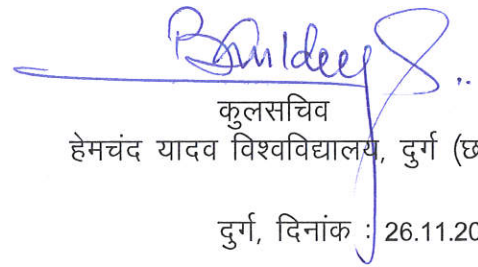 कुलसचिव
हेमचंद यादव विश्वविद्यालय, दुर्ग (छ
दुर्ग, दिनांक : 26.11.20